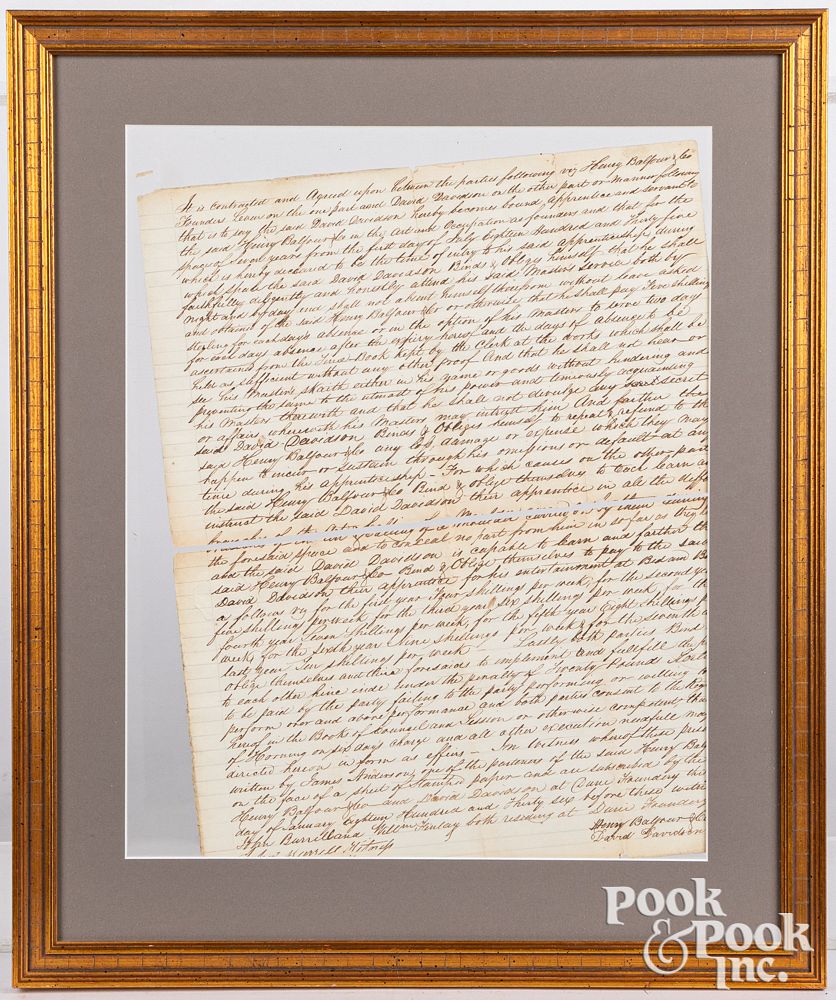 It is contracted and Agreed upon between the parties following viz Henry Balfour & Co
Founders Leven on the one part and David Davidson on the other part or manner following
that is to say the said David Davidson hereby becomes bound apprentice and servant to
the said Henry Balfour & Co in the Art and Occupation as founders and that for the
space of seven years from the first day of July Eighteen Hundred and Thirty five
which is hereby declared to be the time of entry to his said apprenticeship during
which space the said David Davidson Binds & Obliges himself that he shall
faithfully diligently and honestly attend his said Masters service both by
night and by day and shall not absent himself therefrom without leave asked
and obtained of the said Henry Balfour & Co or otherwise that he shall pay Two shilling
sterling for each days absence or in the option of his Masters to serve two days
for each days absence after the expiry hereof and the days of absence to be
ascertained from the Time Book kept by the Clerk at the works which shall be
held as sufficient without any other proof And that he shall not hear or
see his Master's skaith either in his name or goods without hindering and
preventing the same to the utmost of his power and timeously acquainting
his Masters therewith and that he shall not divulge any secret
or affairs wherewith his Masters may intrust him And farther the
said David Davidson Binds & Obliges himself to repeat & refund to the
said Henry Balfour & Co any loss damage or expense which they may
happen to incur or sustain through his omissions or default at any
time during his apprenticeship - For which causes on the other part
the said Henry Balfour & Co Bind & oblige themselves to teach learn and
instruct the said David Davidson their apprentice in all the
branches of the
the foresaid space and to conceal no part from him in so far as they
and the said David Davidson is capable to learn and farther the
said Henry Balfour & Co Bind & Oblige themselves to pay to the said
David Davidson their apprentice for his entertainment at Bed and B
as follows viz for the first year Four shillings per week, for the second year
five shillings per week for the third year Six shillings per week, for the
fourth year seven shillings per week, for the fifth year Eight shillings p
week, for the sixth year nine shillings per week & for the seventh &
last year Ten shillings per week - Lastly both parties Bind &
oblige themselves and their foresaids to implement and fullfill the p
to each other hinc inde under the penalty of Twenty Pounds
to be paid by the party failing to the party performing or willing to
perform over and above performance and both parties consent to the Reg
hereof in the Books of Council and Session or otherwise competent that
of Horning on six days charge and all other execution needfull may
directed hereon in form as effeirs - In witness whereof these pres
written by James Anderson one of the partners of the said Henry Balf
on the face of a sheet of stamped paper and are subscribed by the
Henry Balfour & Co and David Davidson at Dune Foundry the
day of January Eighteen Hundred and Thirty six before these witn
John Burrell and William Finlay both residing at Dune Foundry
Burrell Witness
Henry Balfour & Co
David Davidson
POOK
& POOK
INC.